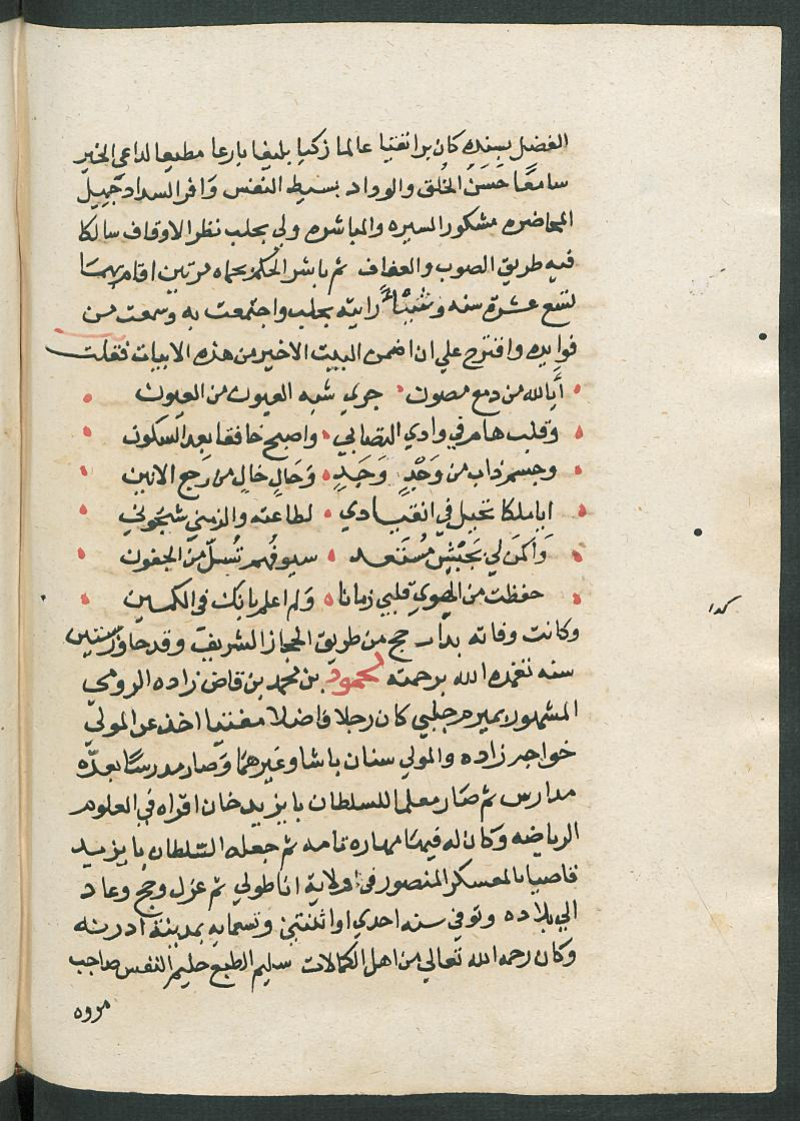 الفضل بسنده كان برا تقيا عالما زكيا بليغا بارعا مطيعا لداعي الخير
سامعًا حَسَنُ الخُلق والوداد بسيط النفس وَافر السداد جميل
المحاضره مشكور السيره والمباشره ولي بحلب نظر الاوقاف سالكا
فيه طريق الصوب والعفاف ثم باشر الحكم بحماه مرتين اقام بهما
تسع عشرة سنه وشيئاً رايته بحلب واجتمعت به وسمعت من
فوايده واقترح علي ان اضمن البيت الاخير من هذه الابيات فقلت
أيا لله من دمع مصون جري شبه العيون من العيون
وقلب هام في وادي التصابي واصبح خافقا بعد السكون
وجسم ذاب من وَجْدٍ وَجيدٍ وَحَالٍ خالٍ من رَجع الانين
ايا ملكا تحيل في انقيادي لطاعته والزمني شجوني
وَاكمَن لي بجَيْشٍ مُستَعد سيوفُهم تُسلّ من الجفون
حفظت من الهوي قلبي زمانا وَلم اعلم بانك في الكمين
وكانت وفاته بدار حج من طريق الحجاز الشريف وقد جاوز ستين
سنه تغمده الله برحمته محمود بن محمد بن قاض زاده الرومي
المشهور بميرم جلبي كان رجلا فاضلا مفتيا اخذ عن المولي
خواجه زاده والمولي سنان باشا وغيرهما وَصار مدرسًا بعدّه
مدارس ثم صَار معلما للسلطان بايزيد خان اقراه في العلوم
الرياضه وَكان له فيها مهاره تامه ثم جعله السّلطان بايزيد
قاضيا بالمعسكر المنصور في ولاية اناطولي ثم عزل وحج وعاد
الي بلاده وتوفي سنه احدي او اثنتين وتسمايه بمدينة ادرنه
وكان رحمه الله تعالي من اهل الكمالات سليم الطبع حليم النفس صاحب
مروه
كذا